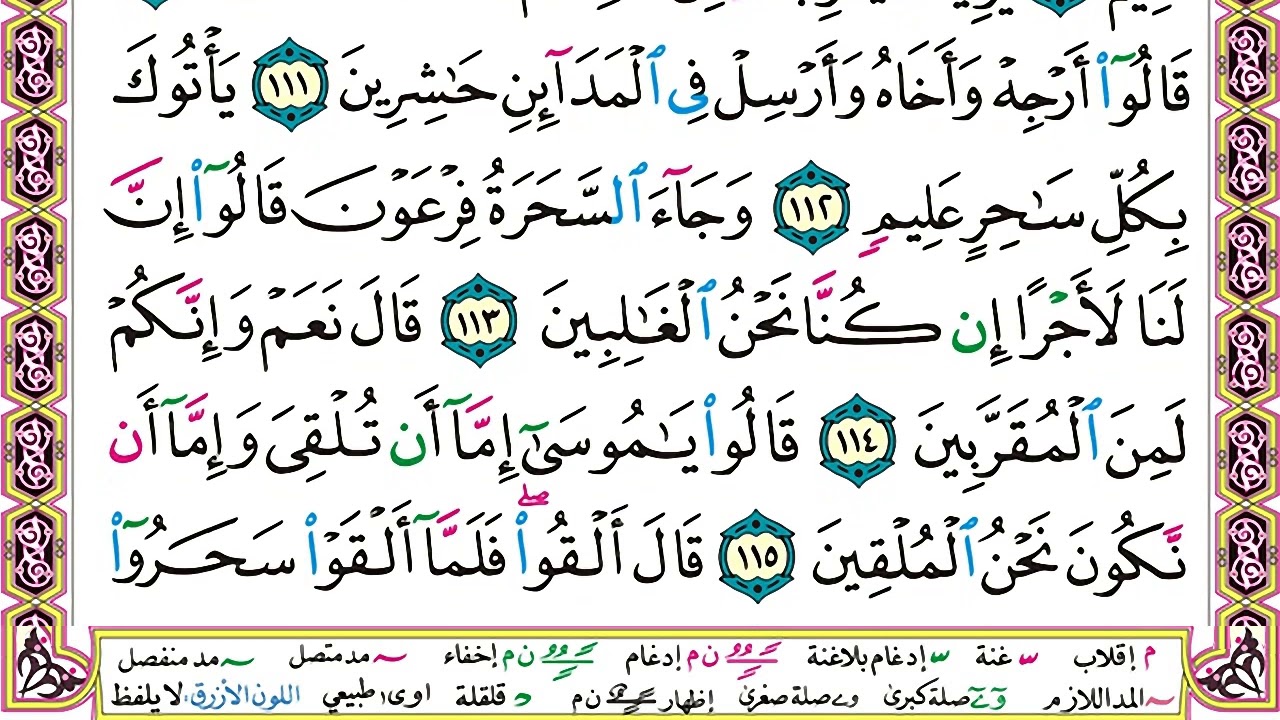 قَالُوٓا۟ أَرْجِهْ وَأَخَاهُ وَأَرْسِلْ فِى ٱلْمَدَآئِنِ حَـٰشِرِينَ ١١١ يَأْتُوكَ
بِكُلِّ سَـٰحِرٍ عَلِيمٍ ١١٢ وَجَآءَ ٱلسَّحَرَةُ فِرْعَوْنَ قَالُوٓا۟ إِنَّ
لَنَا لَأَجْرًا إِن كُنَّا نَحْنُ ٱلْغَـٰلِبِينَ ١١٣ قَالَ نَعَمْ وَإِنَّكُمْ
لَمِنَ ٱلْمُقَرَّبِينَ ١١٤ قَالُوا۟ يَـٰمُوسَىٰٓ إِمَّآ أَن تُلْقِىَ وَإِمَّآ أَن
نَّكُونَ نَحْنُ ٱلْمُلْقِينَ ١١٥ قَالَ أَلْقُوا۟ ۖ فَلَمَّآ أَلْقَوْا۟ سَحَرُوٓا۟
م إقلاب س غنة س إدغام بلاغنة ن م إدغام ن م إخفاء ~ مد متصل ~ مد منفصل
~ المد اللازم و ے صلة كبرى و ے صلة صغرى إظهار ن م د قلقلة اوى طبيعي اللون الأزرق: لا يلفظ